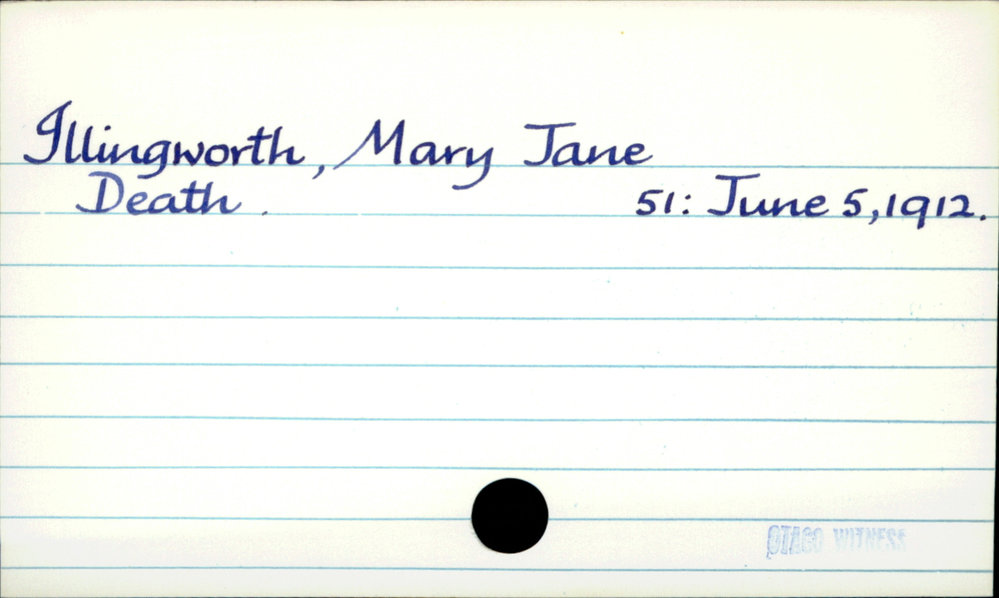 Illingworth, Mary Jane
Death. 51: June 5, 1912.
OTAGO WITNESS